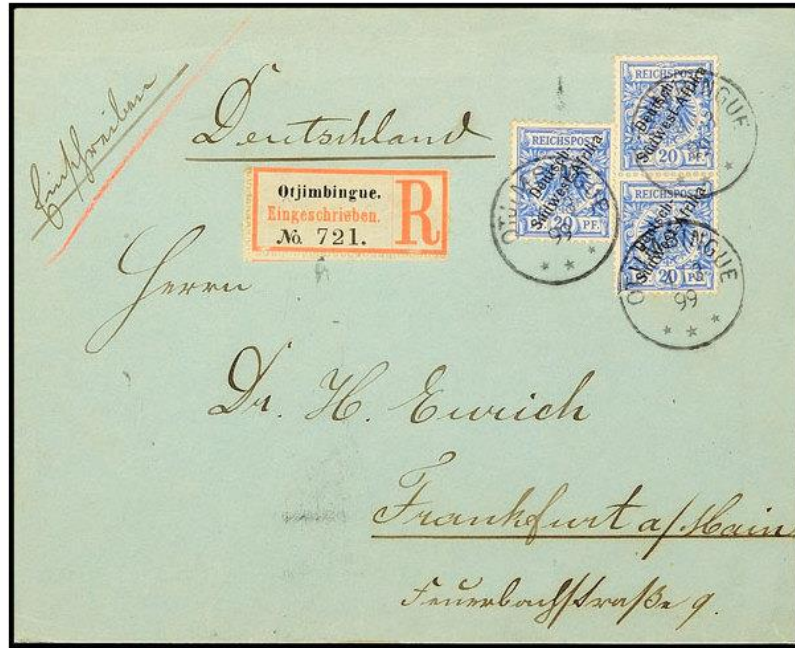 Einschreiben
Deutschland
Otjimbingue.
Eingeschrieben.
No. 721.
R
REICHSPOST
Deutsch-
Südwest-Afrika
20 PF.
REICHSPOST
Deutsch-
Südwest-Afrika
20 PF.
REICHSPOST
Deutsch-
Südwest-Afrika
20 PF.
OTJIMBINGUE
99
* * *
OTJIMBINGUE
OTJIMBINGUE
99
* * *
Herrn
Dr. H. Eurich
Frankfurt a/Main
Feuerbachstraße 9.